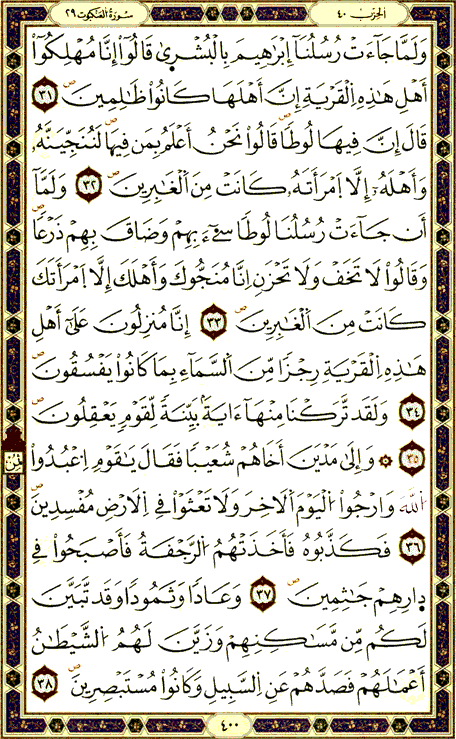 الحزب ٤٠
سورة العنكبوت ٢٩
وَلَمَّا جَآءَتْ رُسُلُنَآ إِبْرَٰهِيمَ بِالْبُشْر۪يٰ قَالُوٓاْ إِنَّا مُهْلِكُوٓاْ
أَهْلِ هَٰذِهِ اِ۬لْقَرْيَةِ إِنَّ أَهْلَهَا كَانُواْ ظَٰلِمِينَ ٣١
قَالَ إِنَّ فِيهَا لُوطاٗ قَالُواْ نَحْنُ أَعْلَمُ بِمَن فِيهَا لَنُنَجِّيَنَّهُۥ
وَأَهْلَهُۥٓ إِلَّا اَ۪مْرَأَتَهُۥ كَانَتْ مِنَ اَ۬لْغَٰبِرِينَ ٣٢ وَلَمَّآ
أَن جَآءَتْ رُسُلُنَا لُوطاٗ سِےٓءَ بِهِمْ وَضَاقَ بِهِمْ ذَرْعاٗ
وَقَالُواْ لَا تَخَفْ وَلَا تَحْزَنِ اِنَّا مُنَجُّوكَ وَأَهْلَكَ إِلَّا اَ۪مْرَأَتَكَ
كَانَتْ مِنَ اَ۬لْغَٰبِرِينَ ٣٣ إِنَّا مُنزِلُونَ عَلَىٰٓ أَهْلِ
هَٰذِهِ اِ۬لْقَرْيَةِ رِجْزاٗ مِّنَ اَ۬لسَّمَآءِ بِمَا كَانُواْ يَفْسُقُونَ
٣٤ وَلَقَد تَّرَكْنَا مِنْهَآ ءَايَةَۢ بَيِّنَةٗ لِّقَوْمٖ يَعْقِلُونَ
٣٥ ۞ وَإِلَىٰ مَدْيَنَ أَخَاهُمْ شُعَيْباٗ فَقَالَ يَٰقَوْمِ اِ۟عْبُدُواْ
ثمن
اُ۬للَّهَ وَارْجُواْ اُ۬لْيَوْمَ اَ۬لَاخِرَ وَلَا تَعْثَوْاْ فِے اِ۬لَارْضِ مُفْسِدِينَ
٣٦ فَكَذَّبُوهُ فَأَخَذَتْهُمُ اُ۬لرَّجْفَةُ فَأَصْبَحُواْ فِے
د۪ارِهِمْ جَٰثِمِينَ ٣٧ وَعَاداٗ وَثَمُوداٗ وَقَد تَّبَيَّنَ
لَكُم مِّن مَّسَٰكِنِهِمْ وَزَيَّنَ لَهُمُ اُ۬لشَّيْطَٰنُ
أَعْمَٰلَهُمْ فَصَدَّهُمْ عَنِ اِ۬لسَّبِيلِ وَكَانُواْ مُسْتَبْصِرِينَ ٣٨
٤٠٠